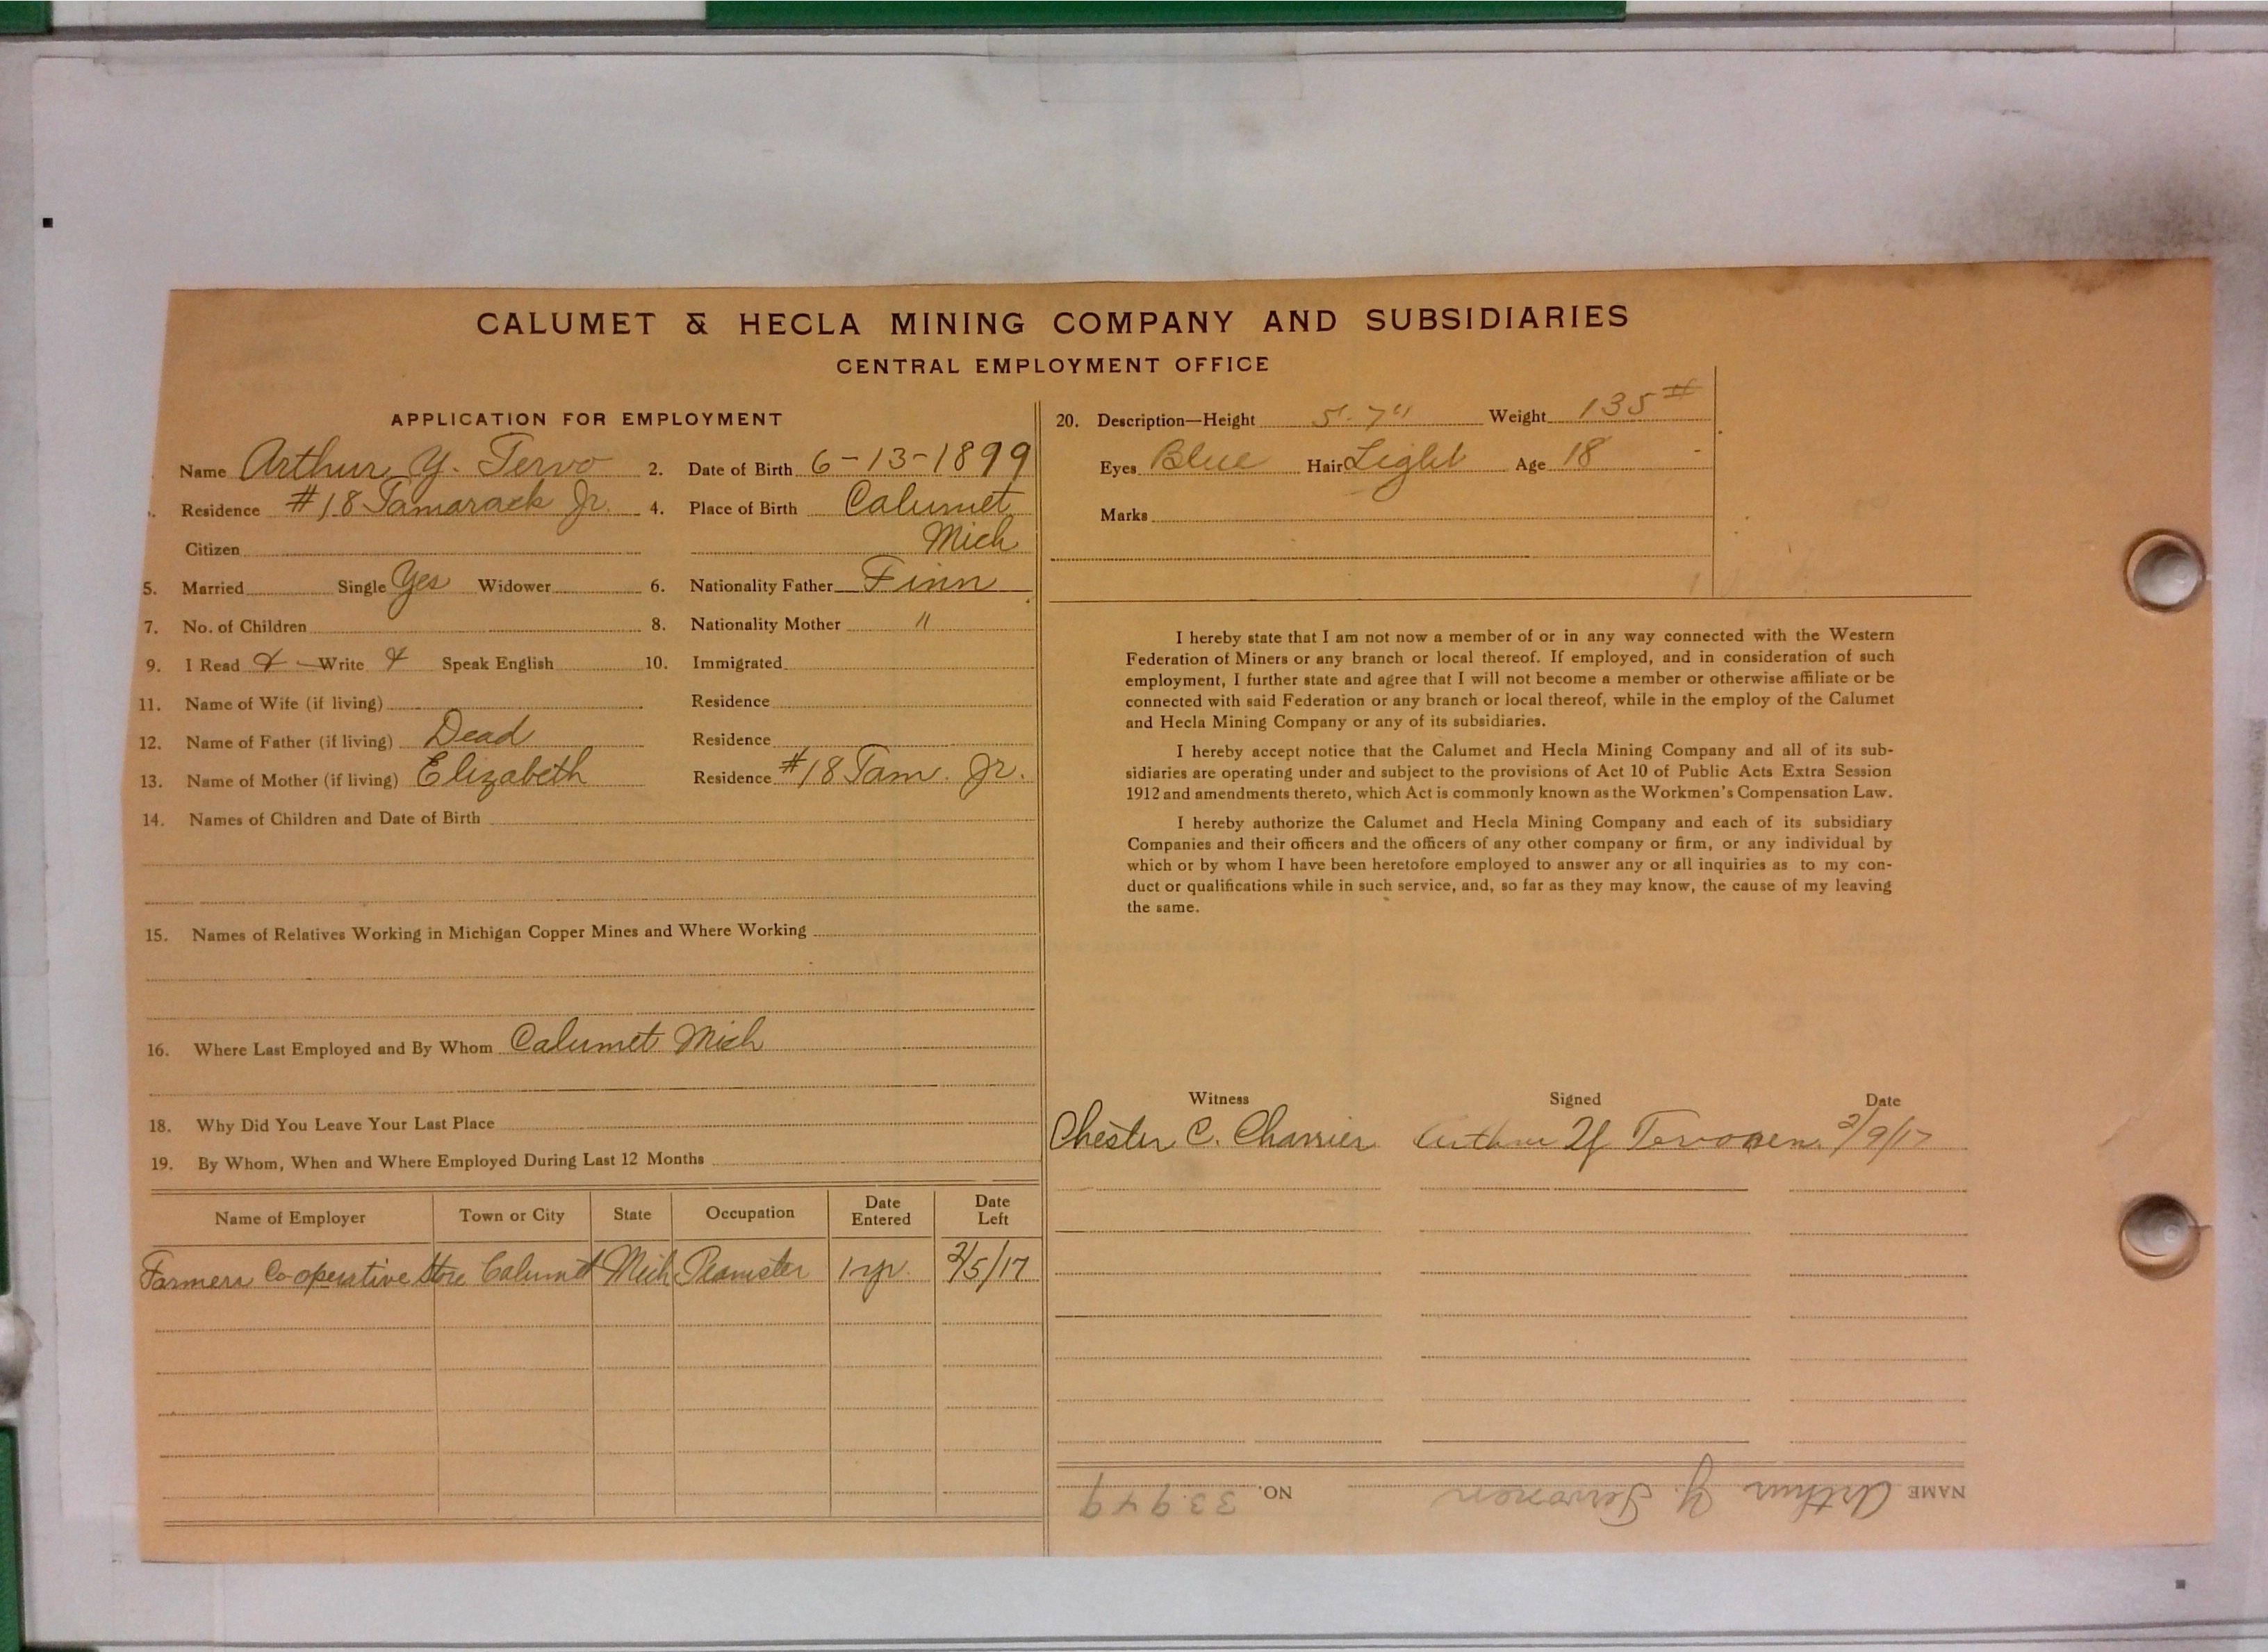 CALUMET & HECLA MINING COMPANY AND SUBSIDIARIES
CENTRAL EMPLOYMENT OFFICE
APPLICATION FOR EMPLOYMENT
Name Arthur Y. Tervo 2. Date of Birth 6-13-1899
Residence #18 Tamarack Jr. 4. Place of Birth Calumet
Citizen Mich
5. Married Single Yes Widower 6. Nationality Father Finn
7. No. of Children 8. Nationality Mother "
9. I Read Write Speak English 10. Immigrated
11. Name of Wife (if living) Residence
12. Name of Father (if living) Dead Residence
13. Name of Mother (if living) Elizabeth Residence #18 Tam. Jr.
14. Names of Children and Date of Birth
15. Names of Relatives Working in Michigan Copper Mines and Where Working
16. Where Last Employed and By Whom Calumet Mich
18. Why Did You Leave Your Last Place
19. By Whom, When and Where Employed During Last 12 Months
Name of Employer Town or City State Occupation Date Entered Date Left
Farmers Co-operative Store Calumet Mich Teamster 1 yr. 2/5/17
20. Description—Height 5' 7" Weight 135#
Eyes Blue Hair Light Age 18
Marks
I hereby state that I am not now a member of or in any way connected with the Western
Federation of Miners or any branch or local thereof. If employed, and in consideration of such
employment, I further state and agree that I will not become a member or otherwise affiliate or be
connected with said Federation or any branch or local thereof, while in the employ of the Calumet
and Hecla Mining Company or any of its subsidiaries.
I hereby accept notice that the Calumet and Hecla Mining Company and all of its sub-
sidiaries are operating under and subject to the provisions of Act 10 of Public Acts Extra Session
1912 and amendments thereto, which Act is commonly known as the Workmen's Compensation Law.
I hereby authorize the Calumet and Hecla Mining Company and each of its subsidiary
Companies and their officers and the officers of any other company or firm, or any individual by
which or by whom I have been heretofore employed to answer any or all inquiries as to my con-
duct or qualifications while in such service, and, so far as they may know, the cause of my leaving
the same.
Witness Signed Date
Chester C. Charrier Arthur Y Tervonen 2/9/17
NAME Arthur Y. Tervonen NO. 33949